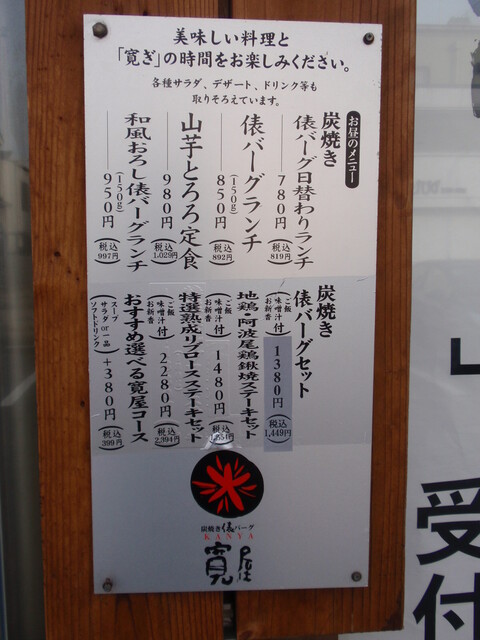 美味しい料理と
「寛ぎ」の時間をお楽しみください。
各種サラダ、デザート、ドリンク等も
取りそろえています。
お昼のメニュー
炭焼き
俵バーグ日替わりランチ
780円(税込819円)
俵バーグランチ
(150g)
850円(税込892円)
山芋とろろ定食
980円(税込1,029円)
和風おろし俵バーグランチ
(150g)
950円(税込997円)
炭焼き
俵バーグセット
ご飯 味噌汁 お新香 付
1380円(税込1,449円)
地鶏・阿波尾鶏鍬焼ステーキセット
ご飯 味噌汁 お新香 付
1480円(税込1,554円)
特選熟成リブロースステーキセット
ご飯 味噌汁 お新香 付
2280円(税込2,394円)
おすすめ選べる寛屋コース
スープ サラダor一品 ソフトドリンク
+380円(税込399円)
炭焼き俵バーグ
KANYA
寛屋
受付